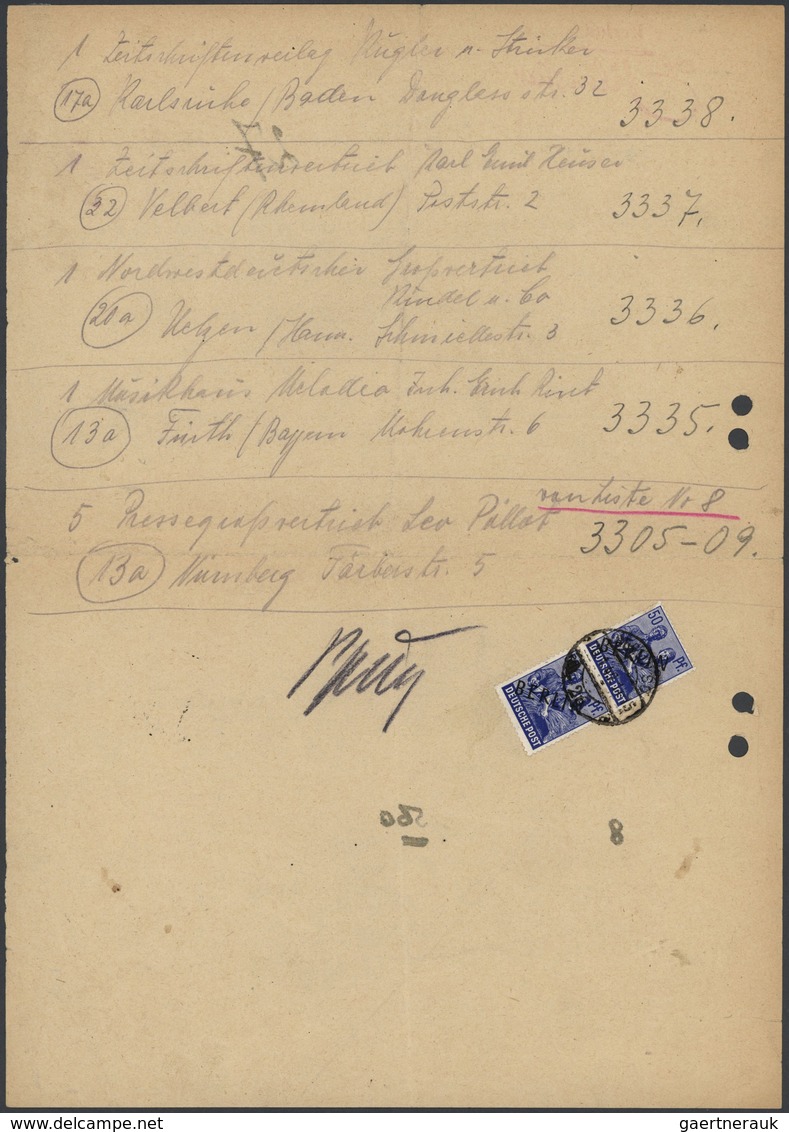 1 Zeitschriftenverlag Kugler u. Stricker
17a Karlsruhe / Baden Douglasstr. 32 3338.
1 Zeitschriftenvertrieb Karl Emil Heuser
22 Velbert (Rheinland) Poststr. 2 3337.
1 Nordwestdeutscher Großvertrieb
Rindel u. Co
20a Uelzen / Hann. Schmiedestr. 3 3336.
1 Musikhaus Melodia Inh. Erich
13a Fürth / Bayern Mohrenstr. 6 3335.
von Liste Nr 8
5 Pressegroßvertrieb Leo
13a Nürnberg Färberstr. 5 3305-09.
50 Pf.
DEUTSCHE POST
BERLIN
Pf.
DEUTSCHE POST
560
8
gaertnerauk